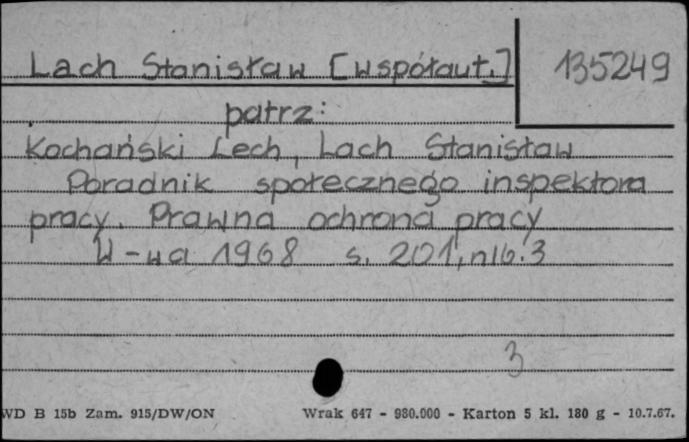 Lach Stanisław [współaut.] 135249
patrz:
Kochański Lech, Lach Stanisław
Poradnik społecznego inspektora
pracy. Prawna ochrona pracy
W-wa 1968 s. 201, nlb. 3
3
WD B 15b Zam. 915/DW/ON Wrak 647 - 980.000 - Karton 5 kl. 180 g - 10.7.67.